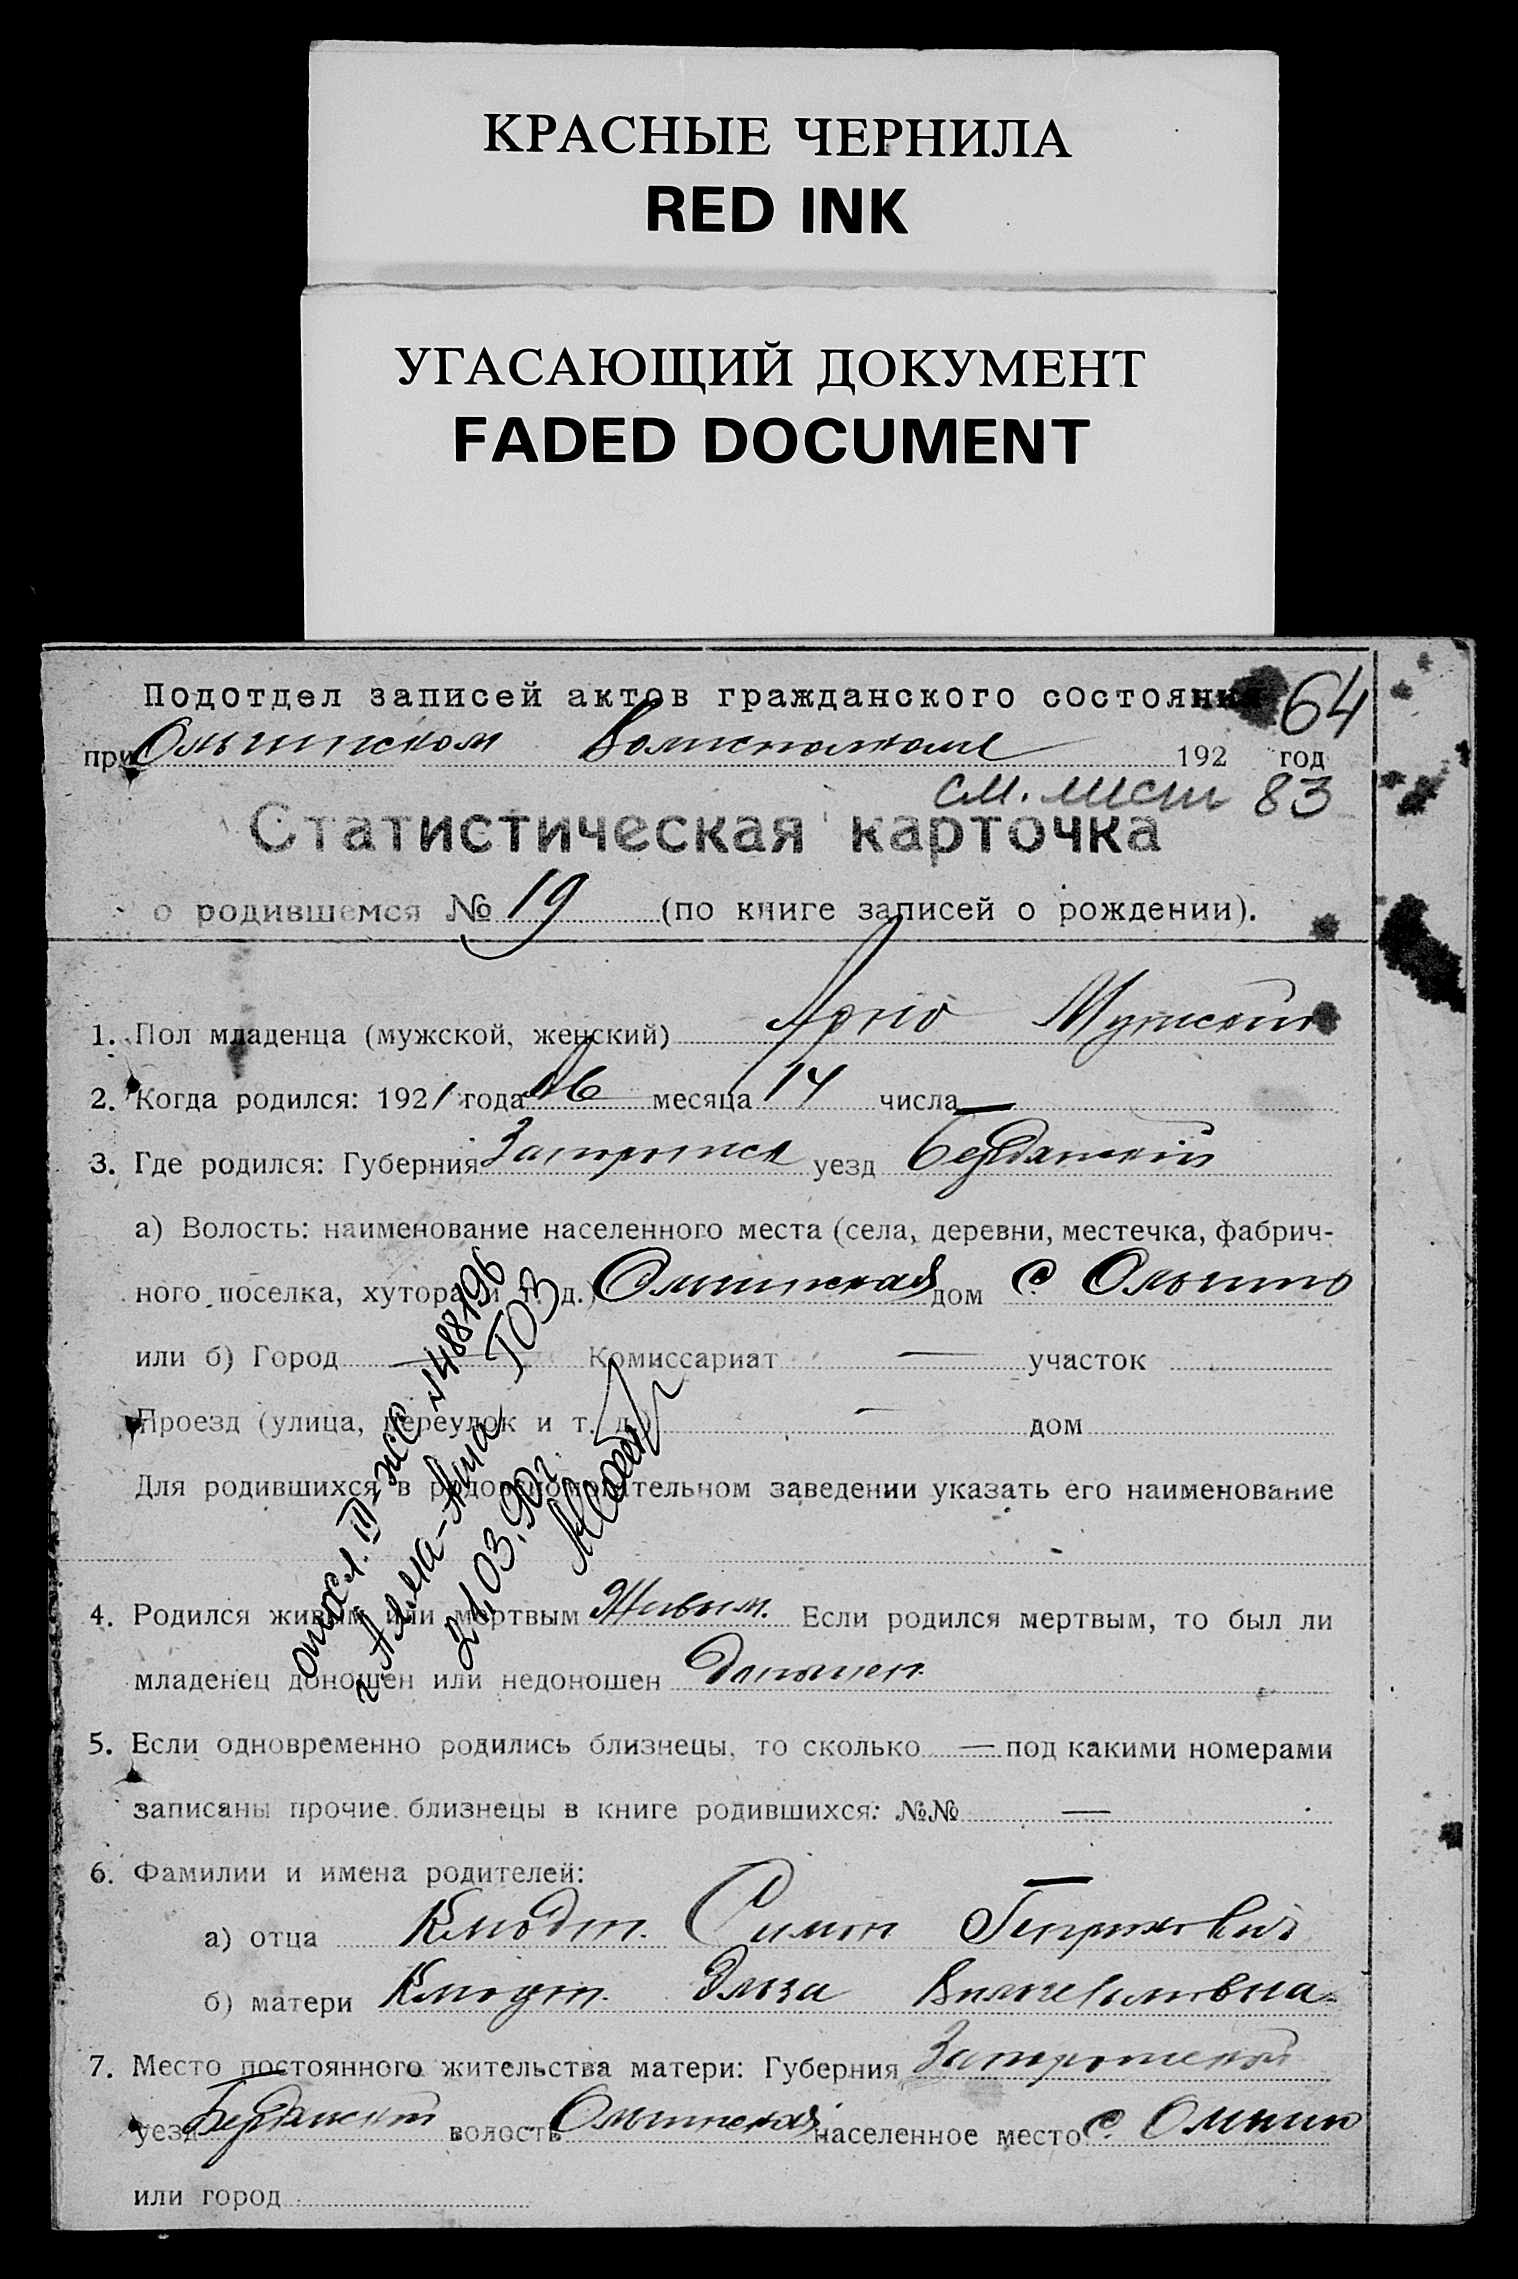 КРАСНЫЕ ЧЕРНИЛА
RED INK
УГАСАЮЩИЙ ДОКУМЕНТ
FADED DOCUMENT
64
Подотдел записей актов гражданского состояния
при Ольгинском Волисполкоме 192 год
см. лист 83
Статистическая карточка
о родившемся № 19 (по книге записей о рождении).
1. Пол младенца (мужской, женский) Арно Мужской
2. Когда родился: 1921 года месяца 14 числа —
3. Где родился: Губерния уезд Бердянский
а) Волость: наименование населенного места (села, деревни, местечка, фабрич-
ного поселка, хутора и т. д.) Ольгинская дом с Ольгино
или б) Город — Комиссариат — участок
Проезд (улица, переулок и т. д.) — дом
Для родившихся в родовспомогательном заведении указать его наименование
4. Родился живым или мертвым Живым. Если родился мертвым, то был ли
младенец доношен или недоношен Доношен
5. Если одновременно родились близнецы, то сколько — под какими номерами
записаны прочие близнецы в книге родившихся: №№ —
6. Фамилии и имена родителей:
а) отца Клодт. Симон Генрихович
б) матери Клодт. Эльза Вильгельмовна
7. Место постоянного жительства матери: Губерния Запорожской
уезд Бердянский волость Ольгинская населенное место с. Ольгино
или город
III-ЖС №488196
г. Алма-Ата ГОЗ
21.03.90г.